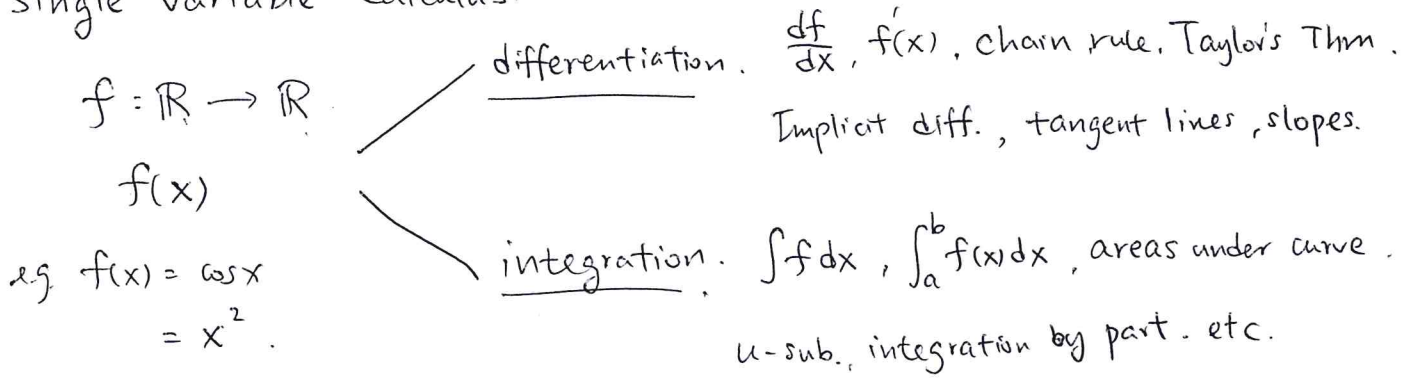 single variable calculus
f : ℝ → ℝ
f(x)
e.g. f(x) = cos x
= x².
differentiation. df/dx, f'(x), chain rule, Taylor's Thm.
Implicit diff., tangent lines, slopes.
integration. ∫f dx, ∫ₐᵇ f(x)dx, areas under curve.
u-sub., integration by part. etc.